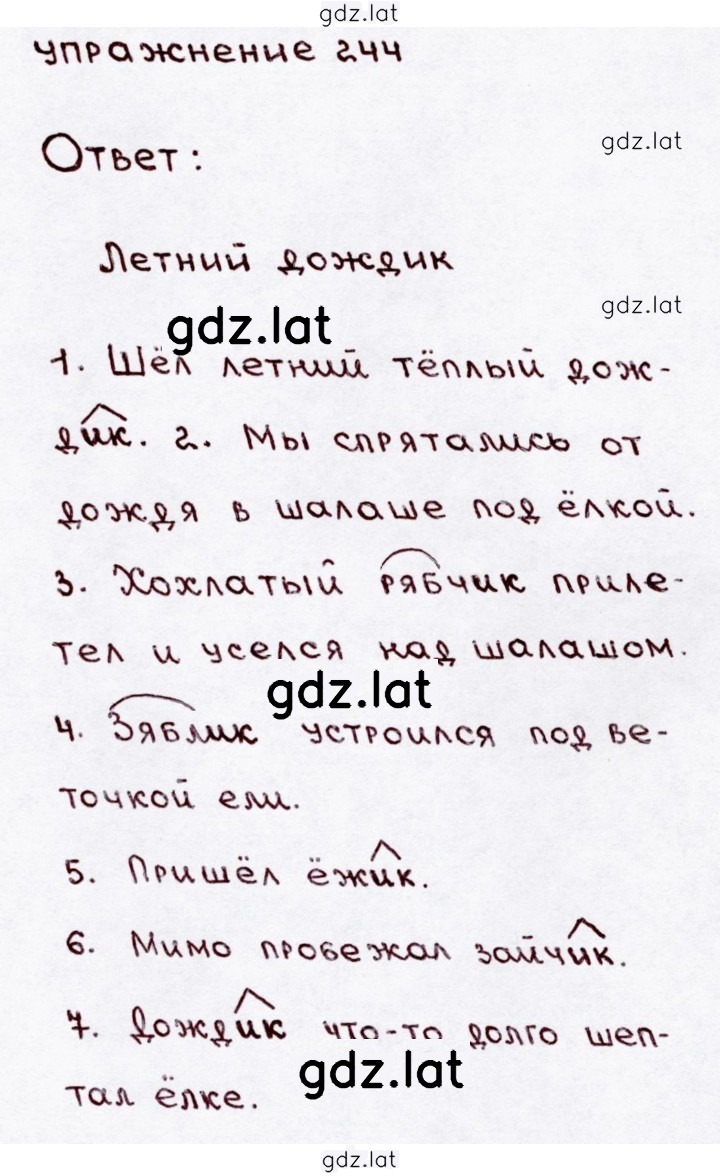 gdz.lat
упражнение 244
Ответ:
gdz.lat
Летний дождик
gdz.lat
gdz.lat
1. Шёл летний тёплый дож-
дик. 2. Мы спрятались от
дождя в шалаше под ёлкой.
3. Хохлатый рябчик приле-
тел и уселся над шалашом.
gdz.lat
4. Зяблик устроился под ве-
точкой ели.
5. Пришёл ёжик.
6. Мимо пробежал зайчик.
7. Дождик что-то долго шеп-
gdz.lat
тал ёлке.
gdz.lat